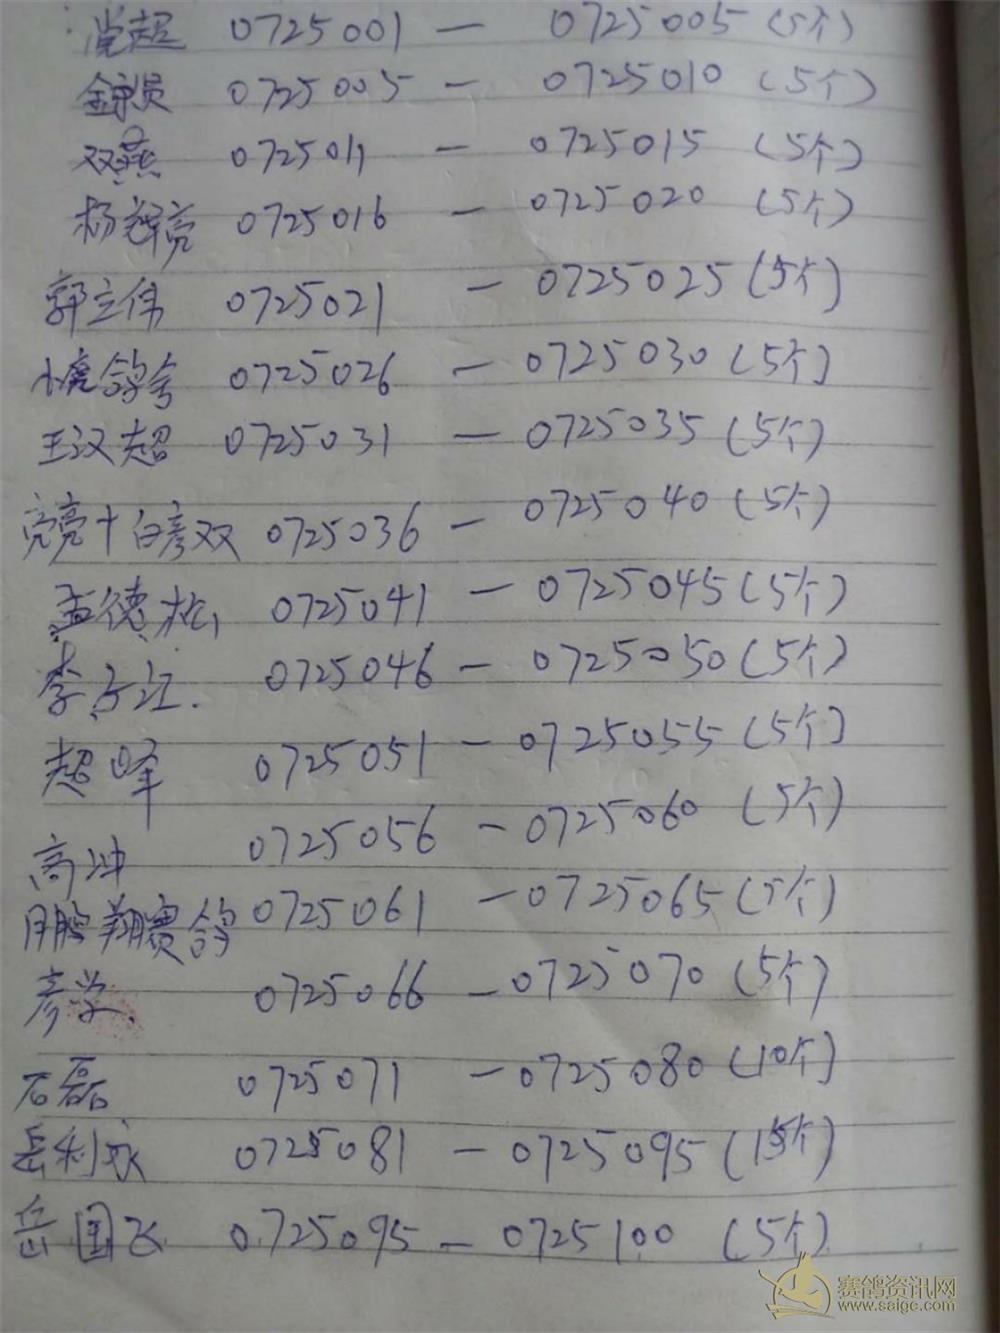 党超 0725001 — 0725005 (5个)
0725005 — 0725010 (5个)
双燕 0725011 — 0725015 (5个)
杨辉亮 0725016 — 0725020 (5个)
郭立伟 0725021 — 0725025 (5个)
小虎鸽舍 0725026 — 0725030 (5个)
王汉超 0725031 — 0725035 (5个)
亮亮十白彦双 0725036 — 0725040 (5个)
孟德松 0725041 — 0725045 (5个)
李子江. 0725046 — 0725050 (5个)
超峰 0725051 — 0725055 (5个)
高坤 0725056 — 0725060 (5个)
鹏翔赛鸽 0725061 — 0725065 (5个)
彦学. 0725066 — 0725070 (5个)
石磊 0725071 — 0725080 (10个)
岳利永 0725081 — 0725095 (15个)
岳国飞 0725095 — 0725100 (5个)
赛鸽资讯网
www.saigc.com